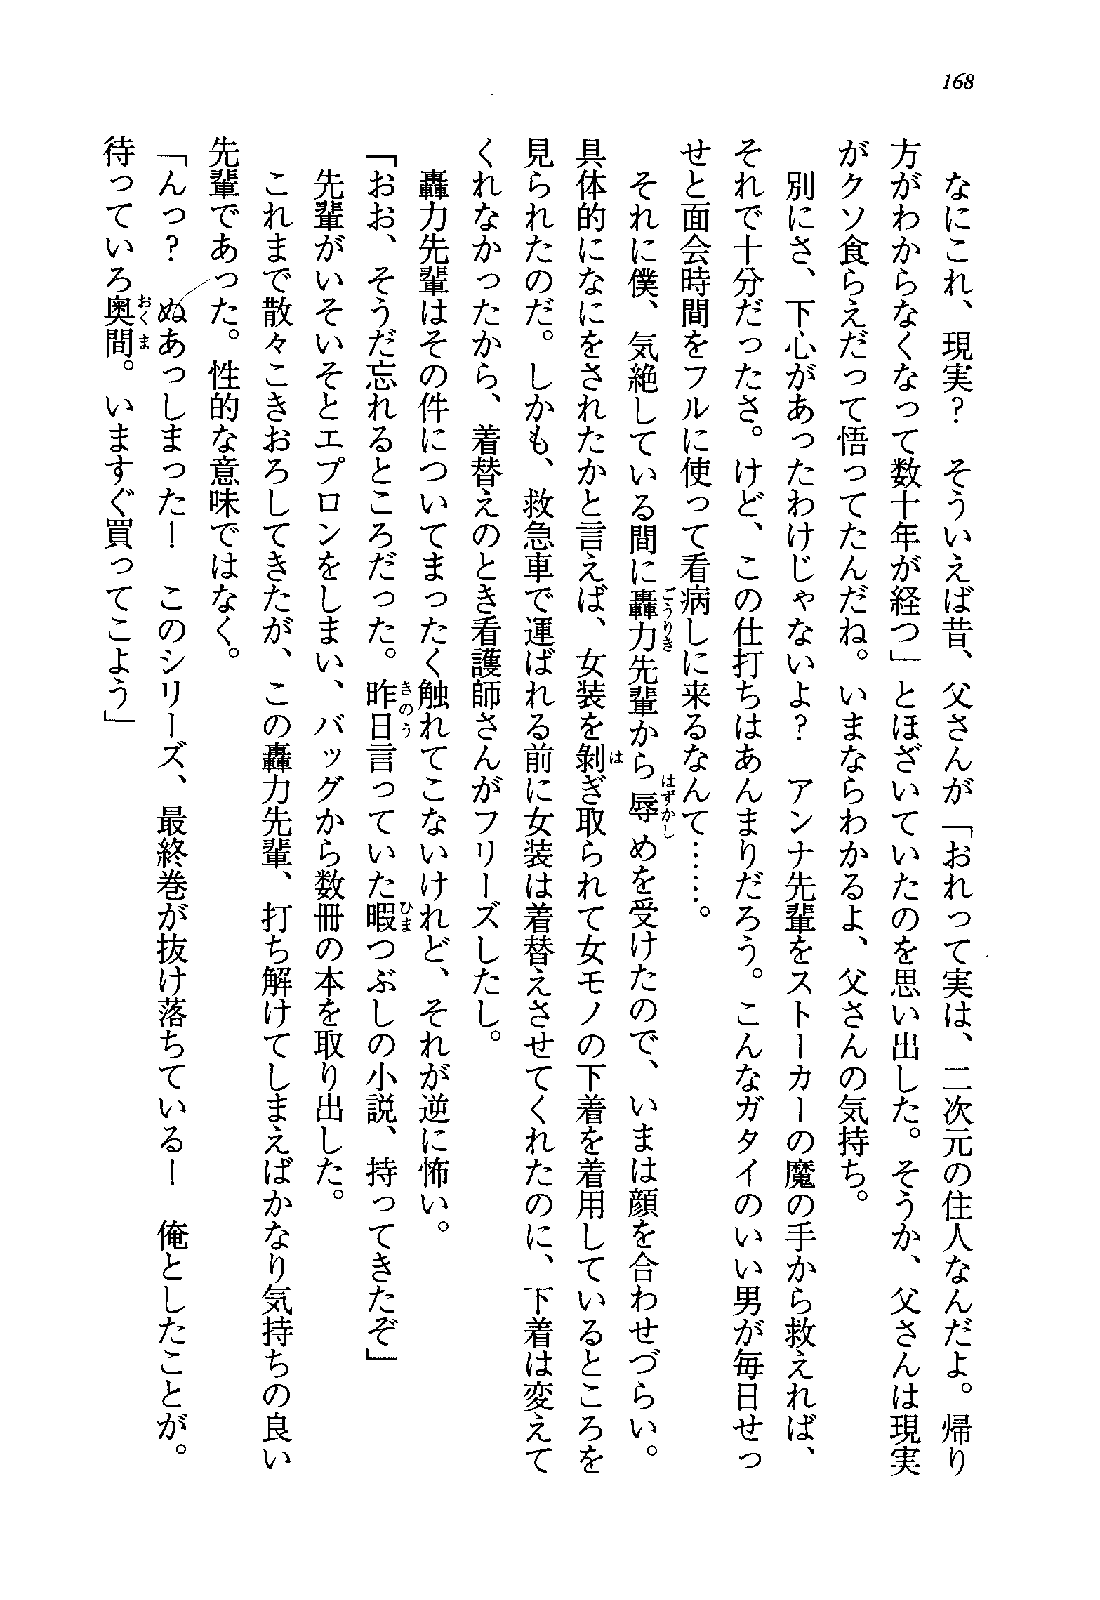 168
　なにこれ、現実？　そういえば昔、父さんが「おれって実は、二次元の住人なんだよ。帰り
方がわからなくなって数十年が経つ」とほざいていたのを思い出した。そうか、父さんは現実
がクソ食らえだって悟ってたんだね。いまならわかるよ、父さんの気持ち。
　別にさ、下心があったわけじゃないよ？　アンナ先輩をストーカーの魔の手から救えれば、
それで十分だったさ。けど、この仕打ちはあんまりだろう。こんなガタイのいい男が毎日せっ
せと面会時間をフルに使って看病しに来るなんて……。
　それに僕、気絶している間に轟力先輩から辱めを受けたので、いまは顔を合わせづらい。
具体的になにをされたかと言えば、女装を剝ぎ取られて女モノの下着を着用しているところを
見られたのだ。しかも、救急車で運ばれる前に女装は着替えさせてくれたのに、下着は変えて
くれなかったから、着替えのとき看護師さんがフリーズしたし。
　轟力先輩はその件についてまったく触れてこないけれど、それが逆に怖い。
「おお、そうだ忘れるところだった。昨日言っていた暇つぶしの小説、持ってきたぞ」
　先輩がいそいそとエプロンをしまい、バッグから数冊の本を取り出した。
　これまで散々こきおろしてきたが、この轟力先輩、打ち解けてしまえばかなり気持ちの良い
先輩であった。性的な意味ではなく。
「んっ？　ぬあっしまった！　このシリーズ、最終巻が抜け落ちている！　俺としたことが。
待っていろ奥間。いますぐ買ってこよう」